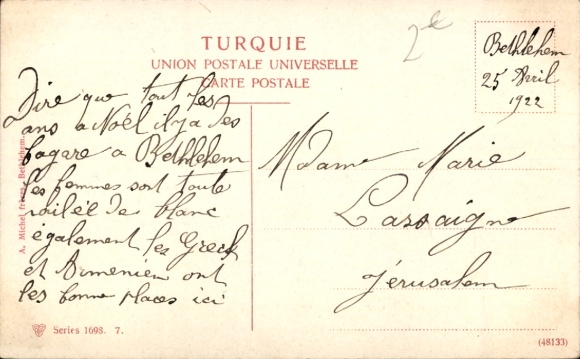 2 e
TURQUIE
UNION POSTALE UNIVERSELLE
CARTE POSTALE
Bethlehem
25 Avril
1922
Dire que tout les
ans a Noël il y a des
bagare a Bethlehem
les femmes sont toute
voilée de blanc
également les Greck
et Armenien ont
les bonne places ici
Madame Marie
Lassaigne
Jérusalem
A. Michel frères, Bethlehem.
Series 1698. 7.
(48133)